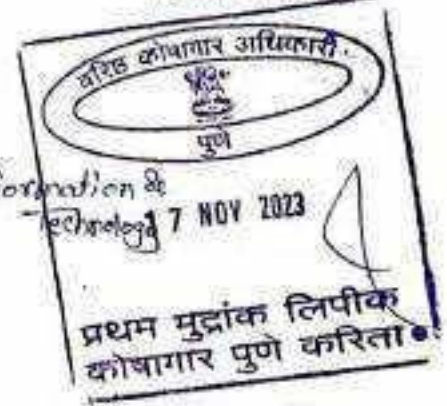 वरिष्ठ कोषागार अधिकारी.
पुणे
formation &
Technology
17 NOV 2023
प्रथम मुद्रांक लिपीक
कोषागार पुणे करिता